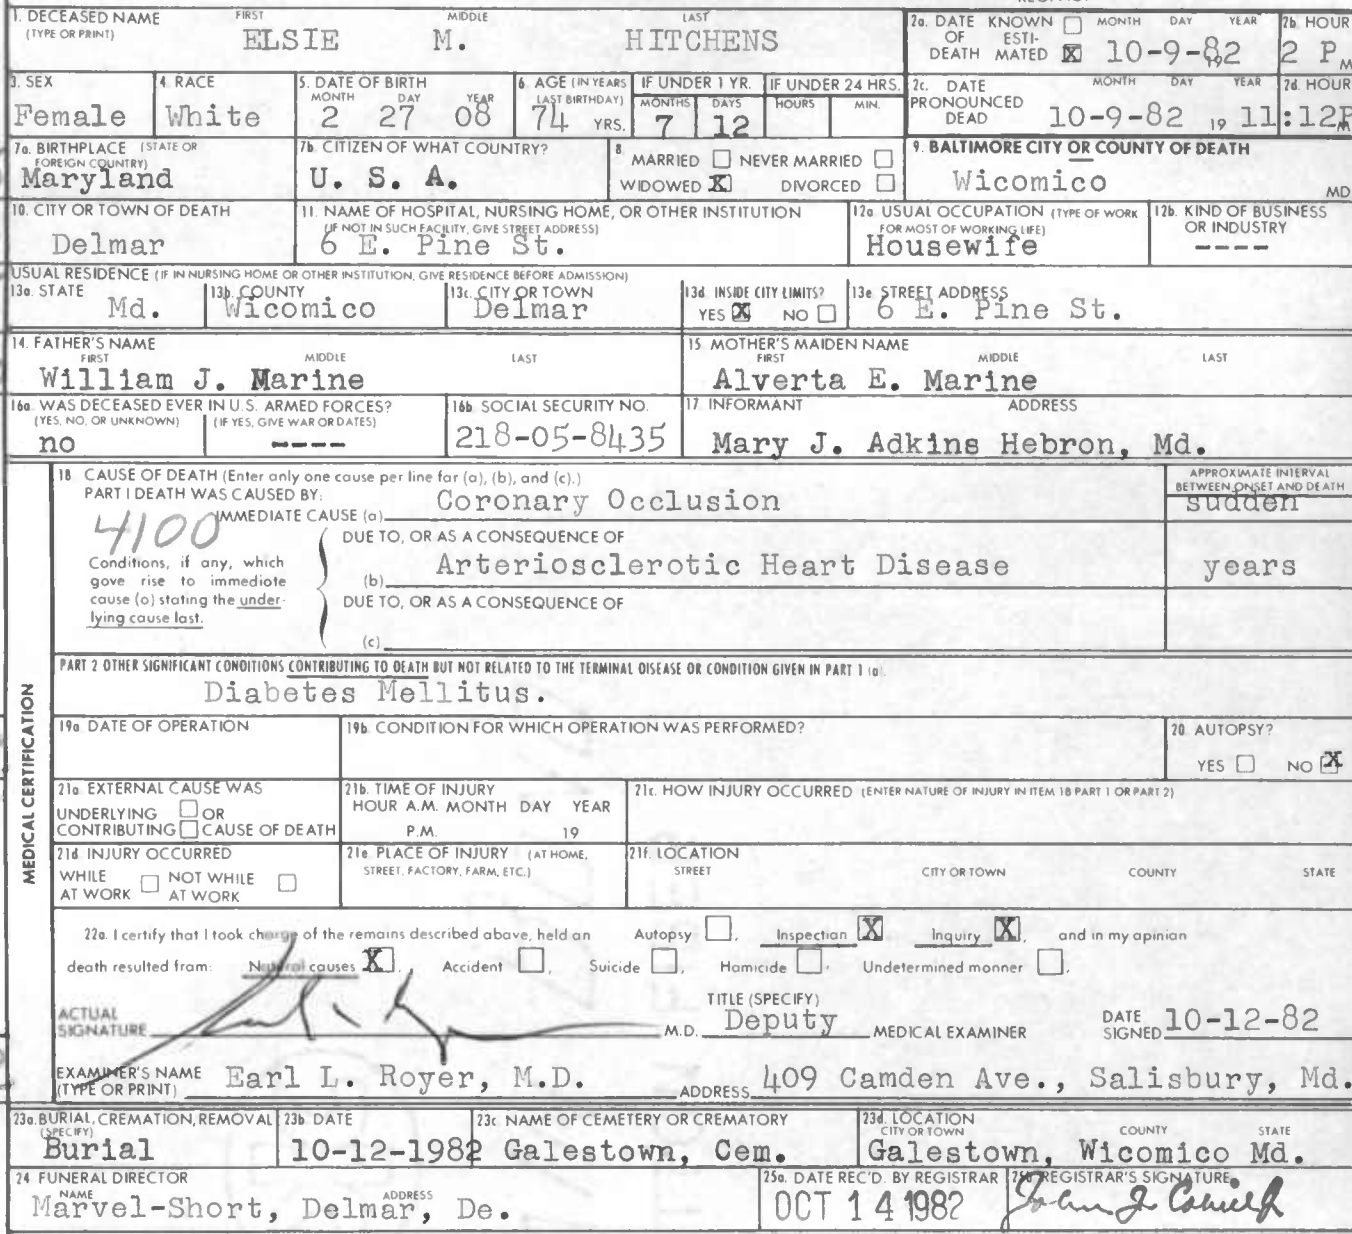 1. DECEASED NAME (TYPE OR PRINT) FIRST MIDDLE LAST
ELSIE M. HITCHENS
2a. DATE OF DEATH KNOWN ☐ ESTIMATED ☒ MONTH DAY YEAR
10-9-82
2b HOUR
2 P M
3. SEX
Female
4. RACE
White
5. DATE OF BIRTH MONTH DAY YEAR
2 27 08
6. AGE (IN YEARS LAST BIRTHDAY)
74 YRS.
IF UNDER 1 YR. MONTHS DAYS
7 12
IF UNDER 24 HRS. HOURS MIN.
2c. DATE PRONOUNCED DEAD MONTH DAY YEAR
10-9-82 19
2d. HOUR
11:12P
7a. BIRTHPLACE (STATE OR FOREIGN COUNTRY)
Maryland
7b. CITIZEN OF WHAT COUNTRY?
U. S. A.
8. MARRIED ☐ NEVER MARRIED ☐
WIDOWED ☒ DIVORCED ☐
9. BALTIMORE CITY OR COUNTY OF DEATH
Wicomico MD
10. CITY OR TOWN OF DEATH
Delmar
11. NAME OF HOSPITAL, NURSING HOME, OR OTHER INSTITUTION
(IF NOT IN SUCH FACILITY, GIVE STREET ADDRESS)
6 E. Pine St.
12a USUAL OCCUPATION (TYPE OF WORK FOR MOST OF WORKING LIFE)
Housewife
12b. KIND OF BUSINESS OR INDUSTRY
----
USUAL RESIDENCE (IF IN NURSING HOME OR OTHER INSTITUTION, GIVE RESIDENCE BEFORE ADMISSION)
13a. STATE
Md.
13b. COUNTY
Wicomico
13c. CITY OR TOWN
Delmar
13d. INSIDE CITY LIMITS?
YES ☒ NO ☐
13e STREET ADDRESS
6 E. Pine St.
14. FATHER'S NAME FIRST MIDDLE LAST
William J. Marine
15. MOTHER'S MAIDEN NAME FIRST MIDDLE LAST
Alverta E. Marine
16a. WAS DECEASED EVER IN U.S. ARMED FORCES?
(YES, NO, OR UNKNOWN) (IF YES, GIVE WAR OR DATES)
no ----
16b. SOCIAL SECURITY NO.
218-05-8435
17. INFORMANT ADDRESS
Mary J. Adkins Hebron, Md.
MEDICAL CERTIFICATION
18. CAUSE OF DEATH (Enter only one cause per line for (a), (b), and (c).)
APPROXIMATE INTERVAL BETWEEN ONSET AND DEATH
PART I DEATH WAS CAUSED BY:
IMMEDIATE CAUSE (a) Coronary Occlusion sudden
4100
DUE TO, OR AS A CONSEQUENCE OF
Conditions, if any, which gove rise to immediote cause (o) stating the underlying cause last.
(b) Arteriosclerotic Heart Disease years
DUE TO, OR AS A CONSEQUENCE OF
(c)
PART 2 OTHER SIGNIFICANT CONDITIONS CONTRIBUTING TO DEATH BUT NOT RELATED TO THE TERMINAL DISEASE OR CONDITION GIVEN IN PART 1 (a).
Diabetes Mellitus.
19a. DATE OF OPERATION
19b. CONDITION FOR WHICH OPERATION WAS PERFORMED?
20. AUTOPSY?
YES ☐ NO ☒
21a. EXTERNAL CAUSE WAS
UNDERLYING ☐ OR
CONTRIBUTING ☐ CAUSE OF DEATH
21b. TIME OF INJURY
HOUR A.M. MONTH DAY YEAR
P.M. 19
21c. HOW INJURY OCCURRED (ENTER NATURE OF INJURY IN ITEM 18 PART 1 OR PART 2)
21d INJURY OCCURRED
WHILE AT WORK ☐ NOT WHILE AT WORK ☐
21e PLACE OF INJURY (AT HOME, STREET, FACTORY, FARM, ETC.)
21f. LOCATION
STREET CITY OR TOWN COUNTY STATE
22a. I certify that I took charge of the remains described above, held an Autopsy ☐, Inspection ☒ Inquiry ☒, and in my opinion
death resulted from: Natural causes ☒, Accident ☐, Suicide ☐, Homicide ☐, Undetermined monner ☐.
ACTUAL SIGNATURE M.D.
TITLE (SPECIFY)
Deputy MEDICAL EXAMINER
DATE SIGNED 10-12-82
EXAMINER'S NAME (TYPE OR PRINT) Earl L. Royer, M.D.
ADDRESS 409 Camden Ave., Salisbury, Md.
23a. BURIAL, CREMATION, REMOVAL (SPECIFY)
Burial
23b. DATE
10-12-1982
23c. NAME OF CEMETERY OR CREMATORY
Galestown, Cem.
23d. LOCATION CITY OR TOWN COUNTY STATE
Galestown, Wicomico Md.
24 FUNERAL DIRECTOR
NAME ADDRESS
Marvel-Short, Delmar, De.
25a. DATE REC'D. BY REGISTRAR
OCT 14 1982
25b REGISTRAR'S SIGNATURE